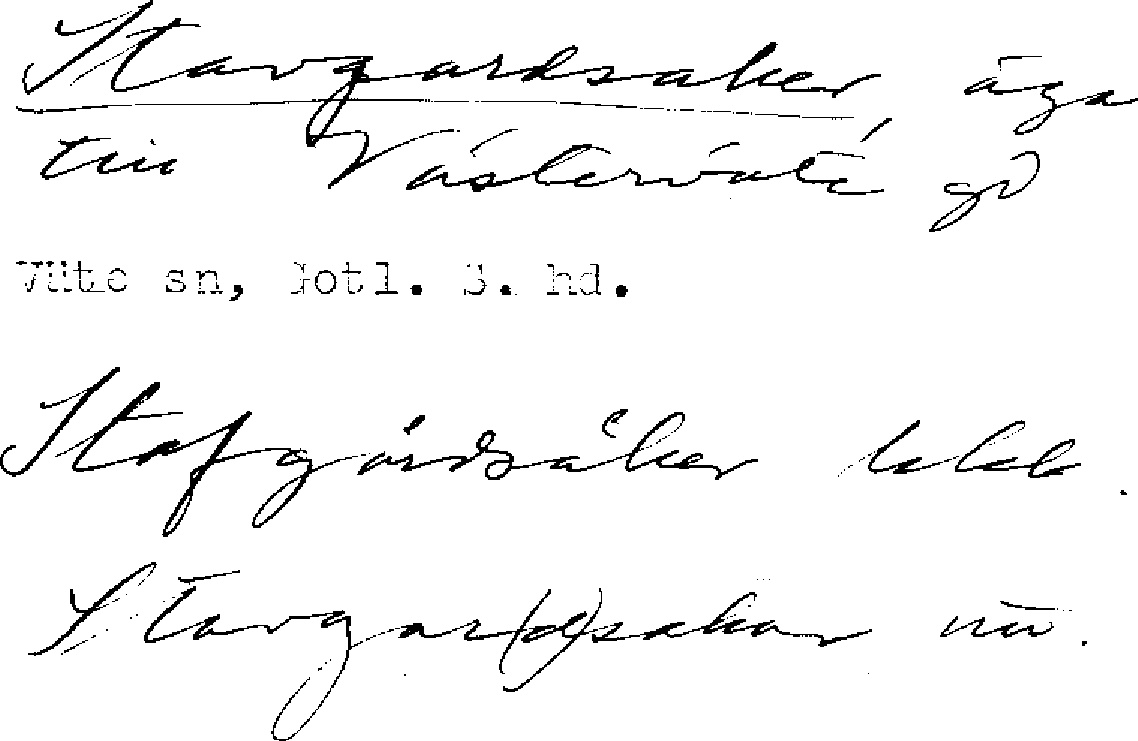 Stavgardsåker, äga
till Västerväte gd
Väte sn, Gotl. S. hd.
Stafgårdsåker
Stavgar(d)sakar